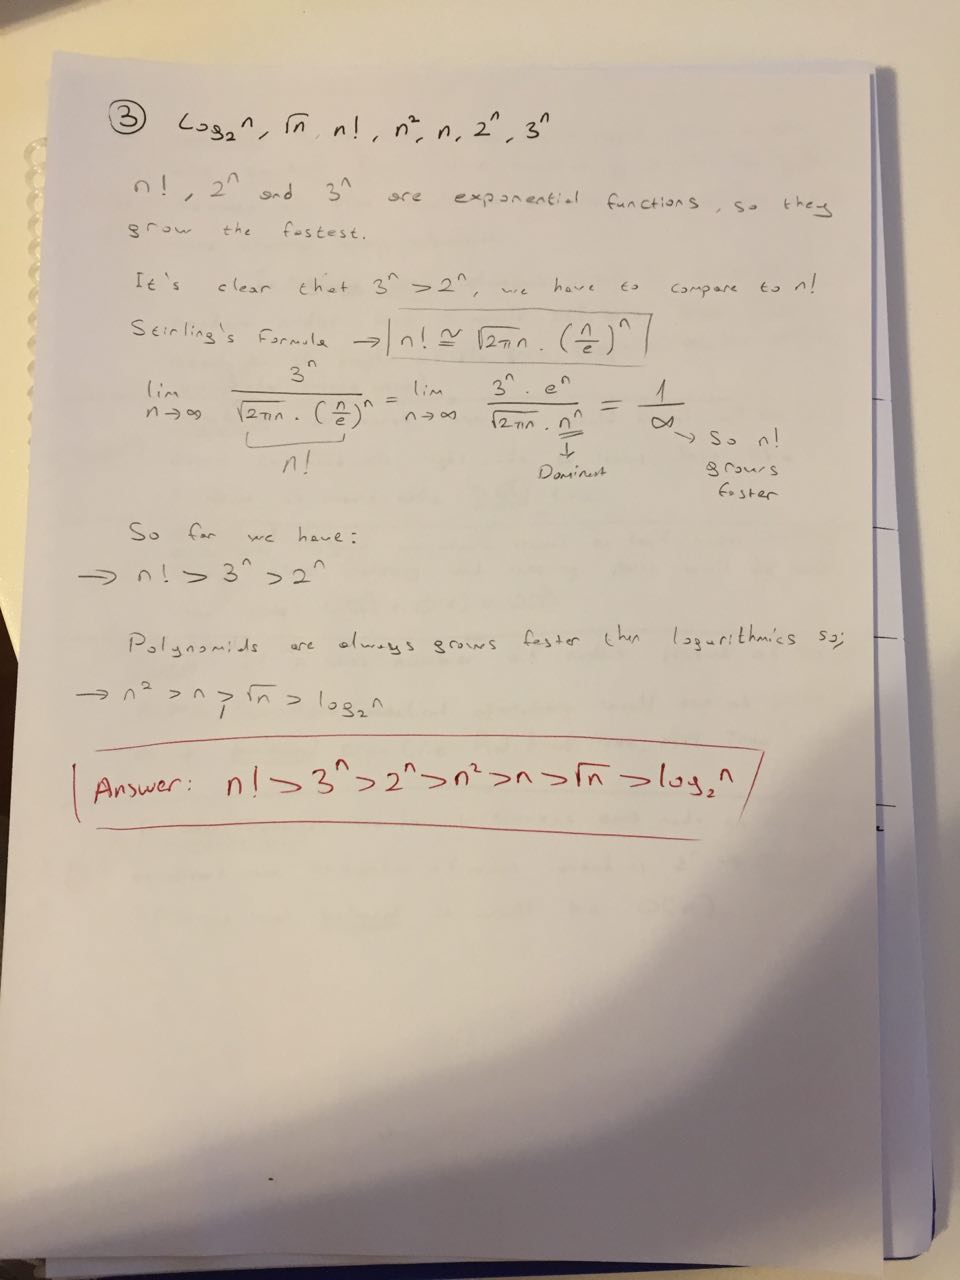 ③ Log₂n, √n n!, n², n, 2ⁿ, 3ⁿ
n!, 2ⁿ and 3ⁿ are exponential functions, so they
grow the fastest.
It's clear that 3ⁿ > 2ⁿ, we have to compare to n!
Stirling's Formula → n! ≅ √2πn . (n/e)ⁿ
lim n→∞ 3ⁿ / (√2πn . (n/e)ⁿ) = lim n→∞ (3ⁿ . eⁿ) / (√2πn . nⁿ) = 1/∞ → So n! grows faster
n!
↓
Dominant
So far we have:
→ n! > 3ⁿ > 2ⁿ
Polynomials are always grows faster than logarithmics so;
→ n² > n > √n > log₂n
Answer: n! > 3ⁿ > 2ⁿ > n² > n > √n > log₂n